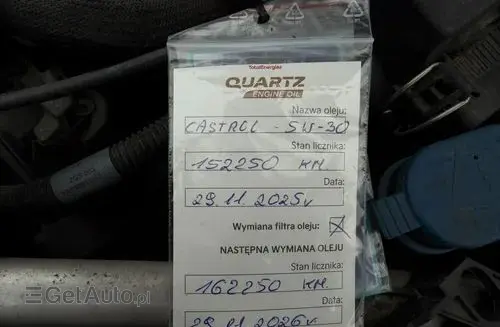 TotalEnergies
QUARTZ
ENGINE OIL
Nazwa oleju:
CASTROL - 5W-30
Stan licznika:
152250 KM.
Data:
29.11.2025r
Wymiana filtra oleju:
NASTĘPNA WYMIANA OLEJU
Stan licznika:
162250 KM.
Data:
29.11.2026r
GetAuto.pl